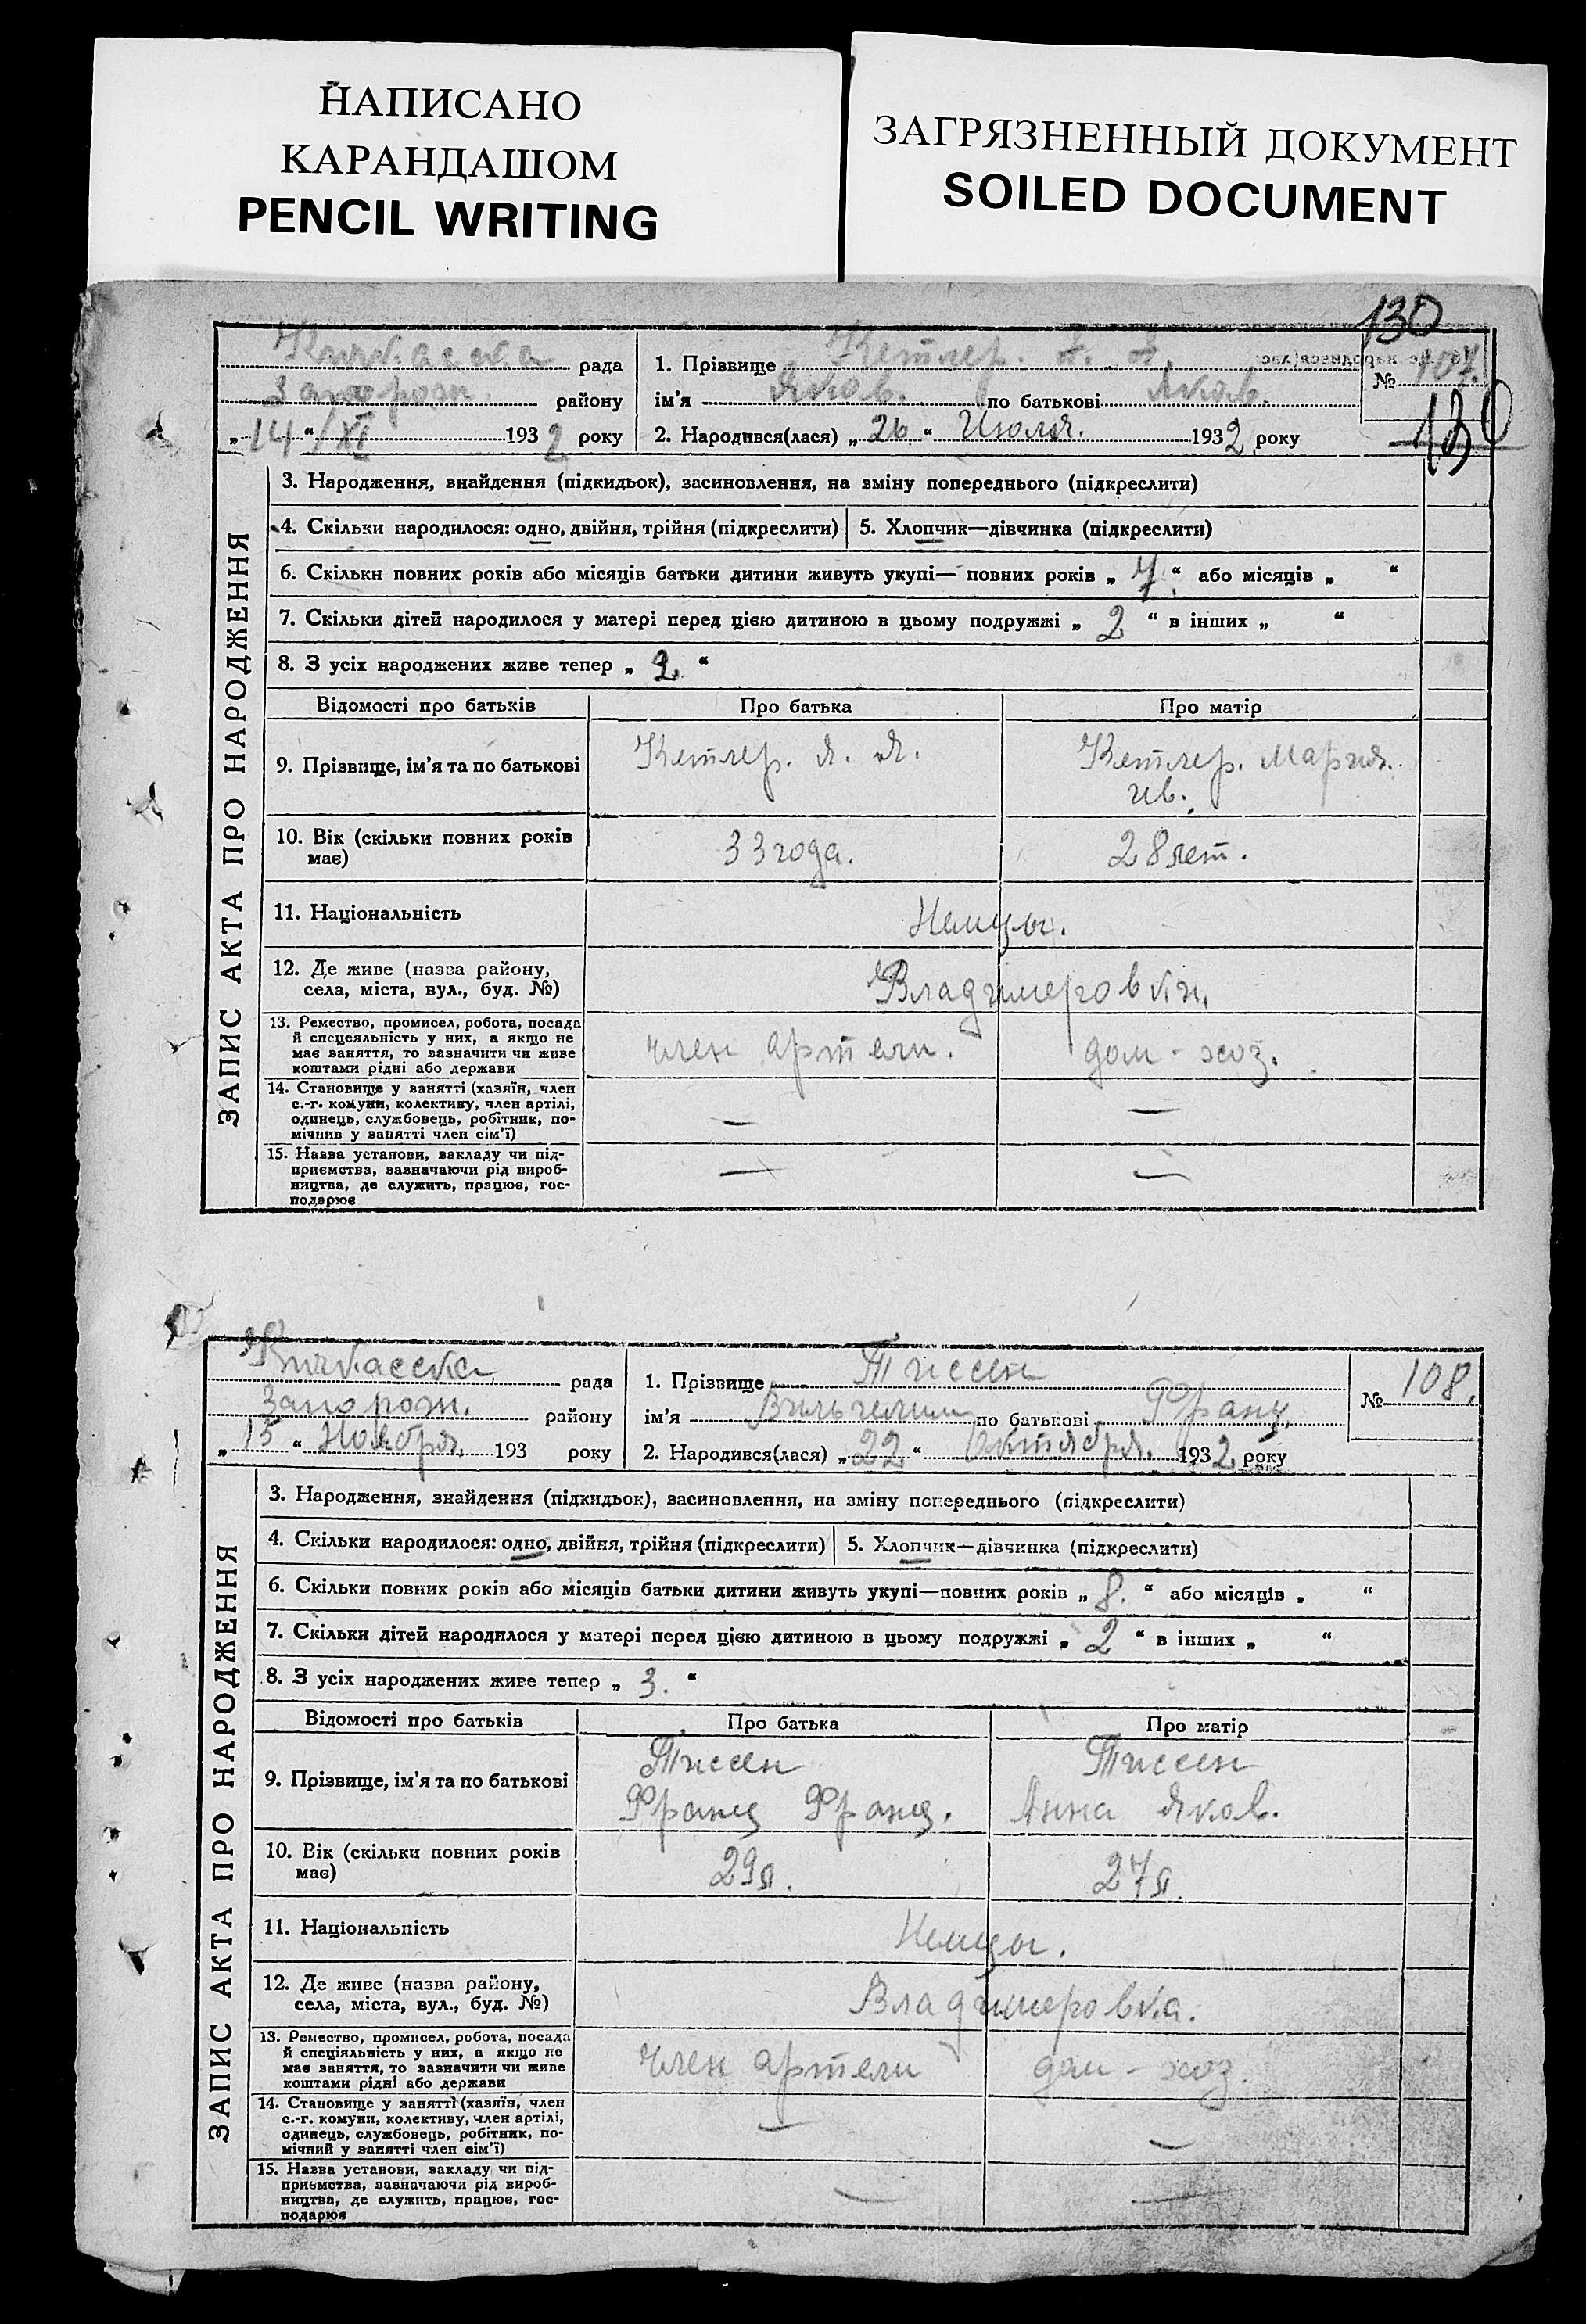 НАПИСАНО
КАРАНДАШОМ
PENCIL WRITING
ЗАГРЯЗНЕННЫЙ ДОКУМЕНТ
SOILED DOCUMENT
130
Кичкаска рада
Запорож. району
„14“/XI 1932 року
1. Прізвище Кетлер.
ім’я Яков. по батькові Яков.
2. Народився(лася) „26“ Июля. 1932 року
№ 107.
130
ЗАПИС АКТА ПРО НАРОДЖЕННЯ
3. Народження, знайдення (підкидьок), засиновлення, на зміну попереднього (підкреслити)
4. Скільки народилося: одно, двійня, трійня (підкреслити) 5. Хлопчик—дівчинка (підкреслити)
6. Скільки повних років або місяців батьки дитини живуть укупі— повних років „7.“ або місяців „ “
7. Скільки дітей народилося у матері перед цією дитиною в цьому подружжі „2“ в інших „ “
8. З усіх народжених живе тепер „2.“
Відомості про батьків Про батька Про матір
9. Прізвище, ім’я та по батькові Кетлер. Я. Я. Кетлер. Мария.
ив.
10. Вік (скільки повних років
має) 33 года. 28 лет.
11. Національність Немцы.
12. Де живе (назва району,
села, міста, вул., буд. №) Владимеровки.
13. Ремество, промисел, робота, посада
й спецеяльність у них, а якщо не
має заняття, то зазначити чи живе
коштами рідні або держави
член артели. дом-хоз.
14. Становище у занятті (хазяїн, член
с.-г. комуни, колективу, член артілі,
одинець, службовець, робітник, по-
мічнив у занятті член сім’ї)
— —
15. Назва установи, закладу чи під-
приємства, зазначаючи рід вироб-
ництва, де служить, працює, гос-
подарює
— —
Кичкасска рада
Запорож. району
„15“ Ноября. 193 року
1. Прізвище Тиссен
ім’я Вильгельм по батькові Франц.
2. Народився(лася) „22“ Октября. 1932 року
№ 108.
ЗАПИС АКТА ПРО НАРОДЖЕННЯ
3. Народження, знайдення (підкидьок), засиновлення, на зміну попереднього (підкреслити)
4. Скільки народилося: одно, двійня, трійня (підкреслити) 5. Хлопчик—дівчинка (підкреслити)
6. Скільки повних років або місяців батьки дитини живуть укупі—повних років „8.“ або місяців „ “
7. Скільки дітей народилося у матері перед цією дитиною в цьому подружжі „2“ в інших „ “
8. З усіх народжених живе тепер „3.“
Відомості про батьків Про батька Про матір
9. Прізвище, ім’я та по батькові
Тиссен Тиссен
Франц Франц. Анна Яков.
10. Вік (скільки повних років
має) 29л. 27л.
11. Національність Немцы.
12. Де живе (назва району,
села, міста, вул., буд. №) Владимеровка.
13. Ремество, промисел, робота, посада
й спеціяльність у них, а якщо не
має заняття, то зазначити чи живе
коштами рідні або держави
член артели дом-хоз.
14. Становище у занятті (хазяїн, член
с.-г. комуни, колективу, член артілі,
одинець, службовець, робітник, по-
мічний у занятті член сім’ї)
— —
15. Назва установи, закладу чи під-
приємства, зазначаючи рід вироб-
ництва, де служить, працює, гос-
подарює
— —